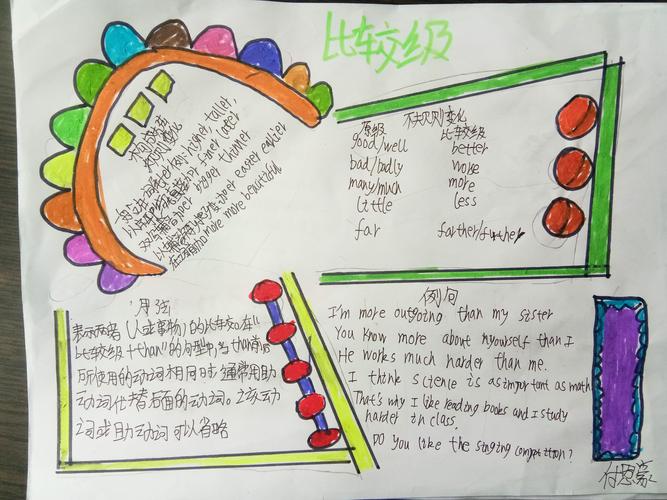 比较级
词形变化
规则变化
higher, taller,
finer later
bigger thinner
以辅音字母加y结尾 变y加er easier earlier
more more beautiful
不规则变化
原级 比较级
good/well better
bad/badly worse
many/much more
little less
far farther/further
用法
表示两者(人或事物)的比较。在"
比较级+than"的句型中,当than前后
所使用的动词相同时,通常用助
动词代替后面的动词。该动
词或助动词可以省略
例句
I'm more outgoing than my sister
You know more about myourself than I
He works much harder than me.
I think science is as important as math
That's why I like reading books and I study
harder in class.
DO you like the singing competition?
付恩豪